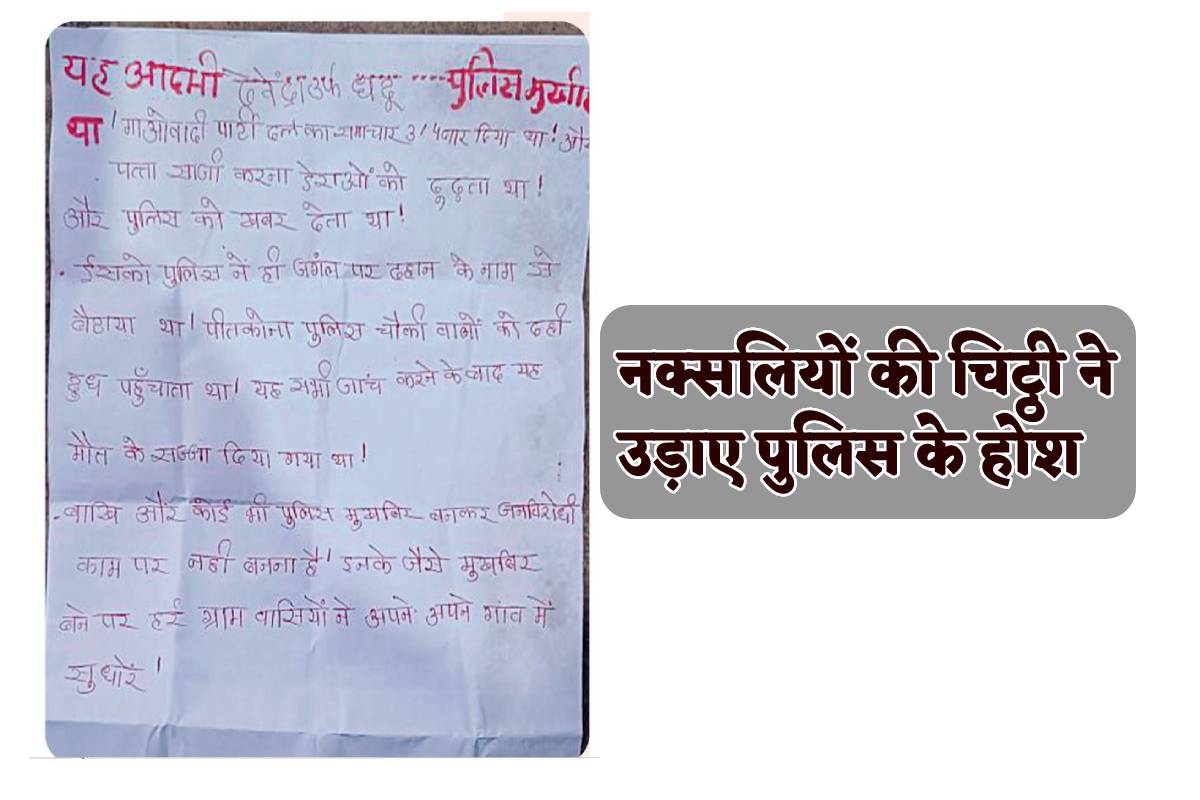 यह आदमी देवेंद्र उर्फ धदू ---- पुलिस मुर्खाि
था! माओवादी पार्टी दल का समाचार 3/4 बार दिया था! और
पत्ता साजी करना डेराओं को ढूढ़ता था!
और पुलिस को खबर देता था!
. ईसको पुलिस नें ही जगंल पर दहान के नाम से
बैठाया था! पीतकोना पुलिस चौकी वालों को दही
दुध पहुँचाता था! यह सभी जांच करने के बाद यह
मौत के सज्जा दिया गया था!
- बाखि और कोई भी पुलिस मुखबिर बनकर जनविरोधी
काम पर नही बनना है! इनके जैसे मुखबिर
बने पर हर ग्राम वासियों ने अपने अपने गांव में
सुधारें!
नक्सलियों की चिट्ठी ने
उड़ाए पुलिस के होश